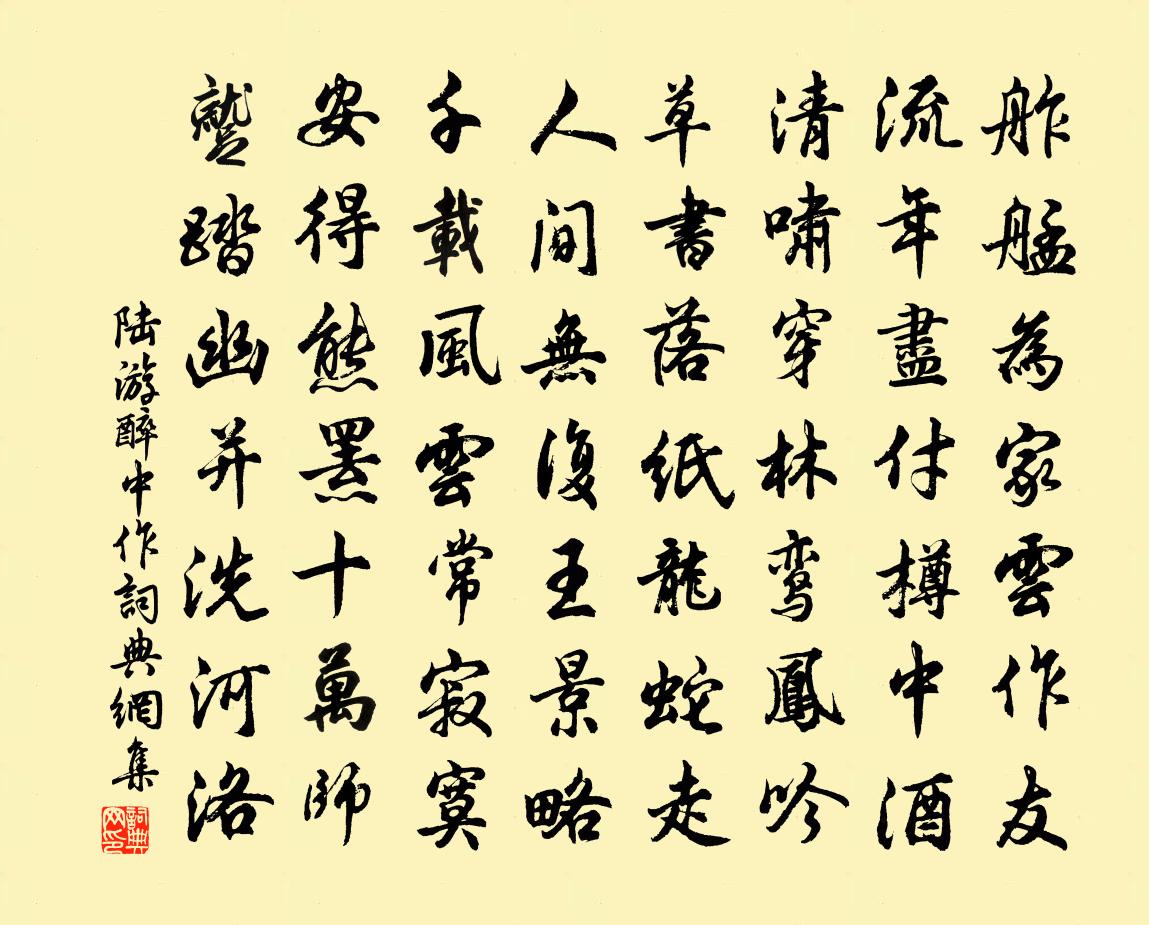 舴艋為家雲作友
流年盡付樽中酒
清嘯穿林鸾鳳吟
草書落紙龍蛇走
人間無復王景略
千載風雲常寂寞
安得熊罴十萬師
蹵踏幽并洗河洛
陸游醉中作詞典網集
詞典网印